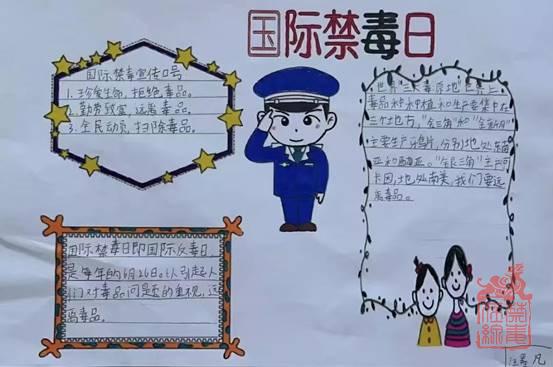 国际禁毒日
国际禁毒宣传口号
1.珍爱生命,拒绝毒品。
2.勤劳致富,远离毒品。
3.全民动员,扫除毒品。
世界三大毒源地:世界上
毒品和种植和生产要集中在
三个地方,"金三角"和"金新月"
主要生产鸦片,分别地处东南
亚和西南亚。"银三角"主产可
卡因,地处南美,我们要远
离毒品。
国际禁毒日即国际反毒日
是每年的6月26日。以引起人
们对毒品问题的重视,远
离毒品。